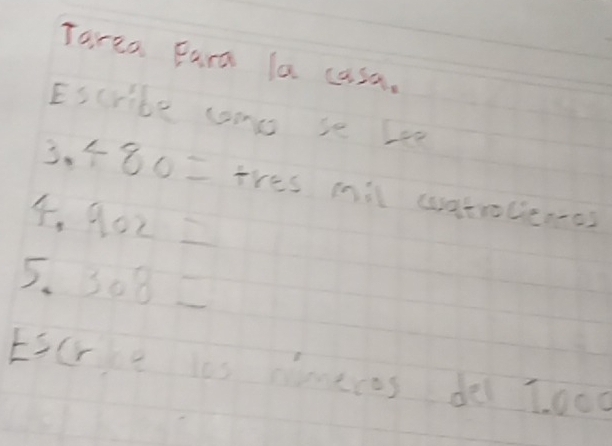 Tarea Para la casa.
Escribe como se Lee
3.480 = tres mil cuatrocientos
4.902 =
5.308 =
Escribe los números del 1.000